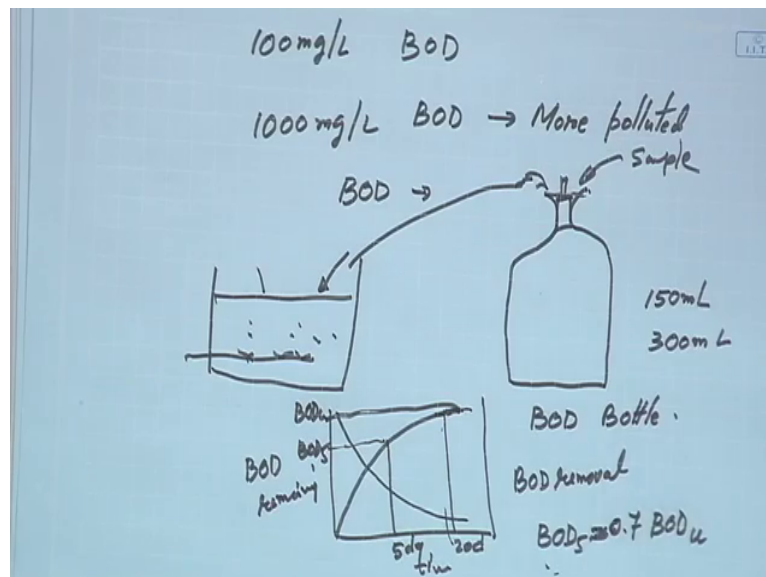 100mg/L BOD
I.I.T
1000 mg/L BOD → More polluted
Sample
BOD →
150mL
300mL
BOD Bottle.
BODu
BOD5
BOD
remaining
BOD removal
5dy 20d
time
BOD5 = 0.7 BODu